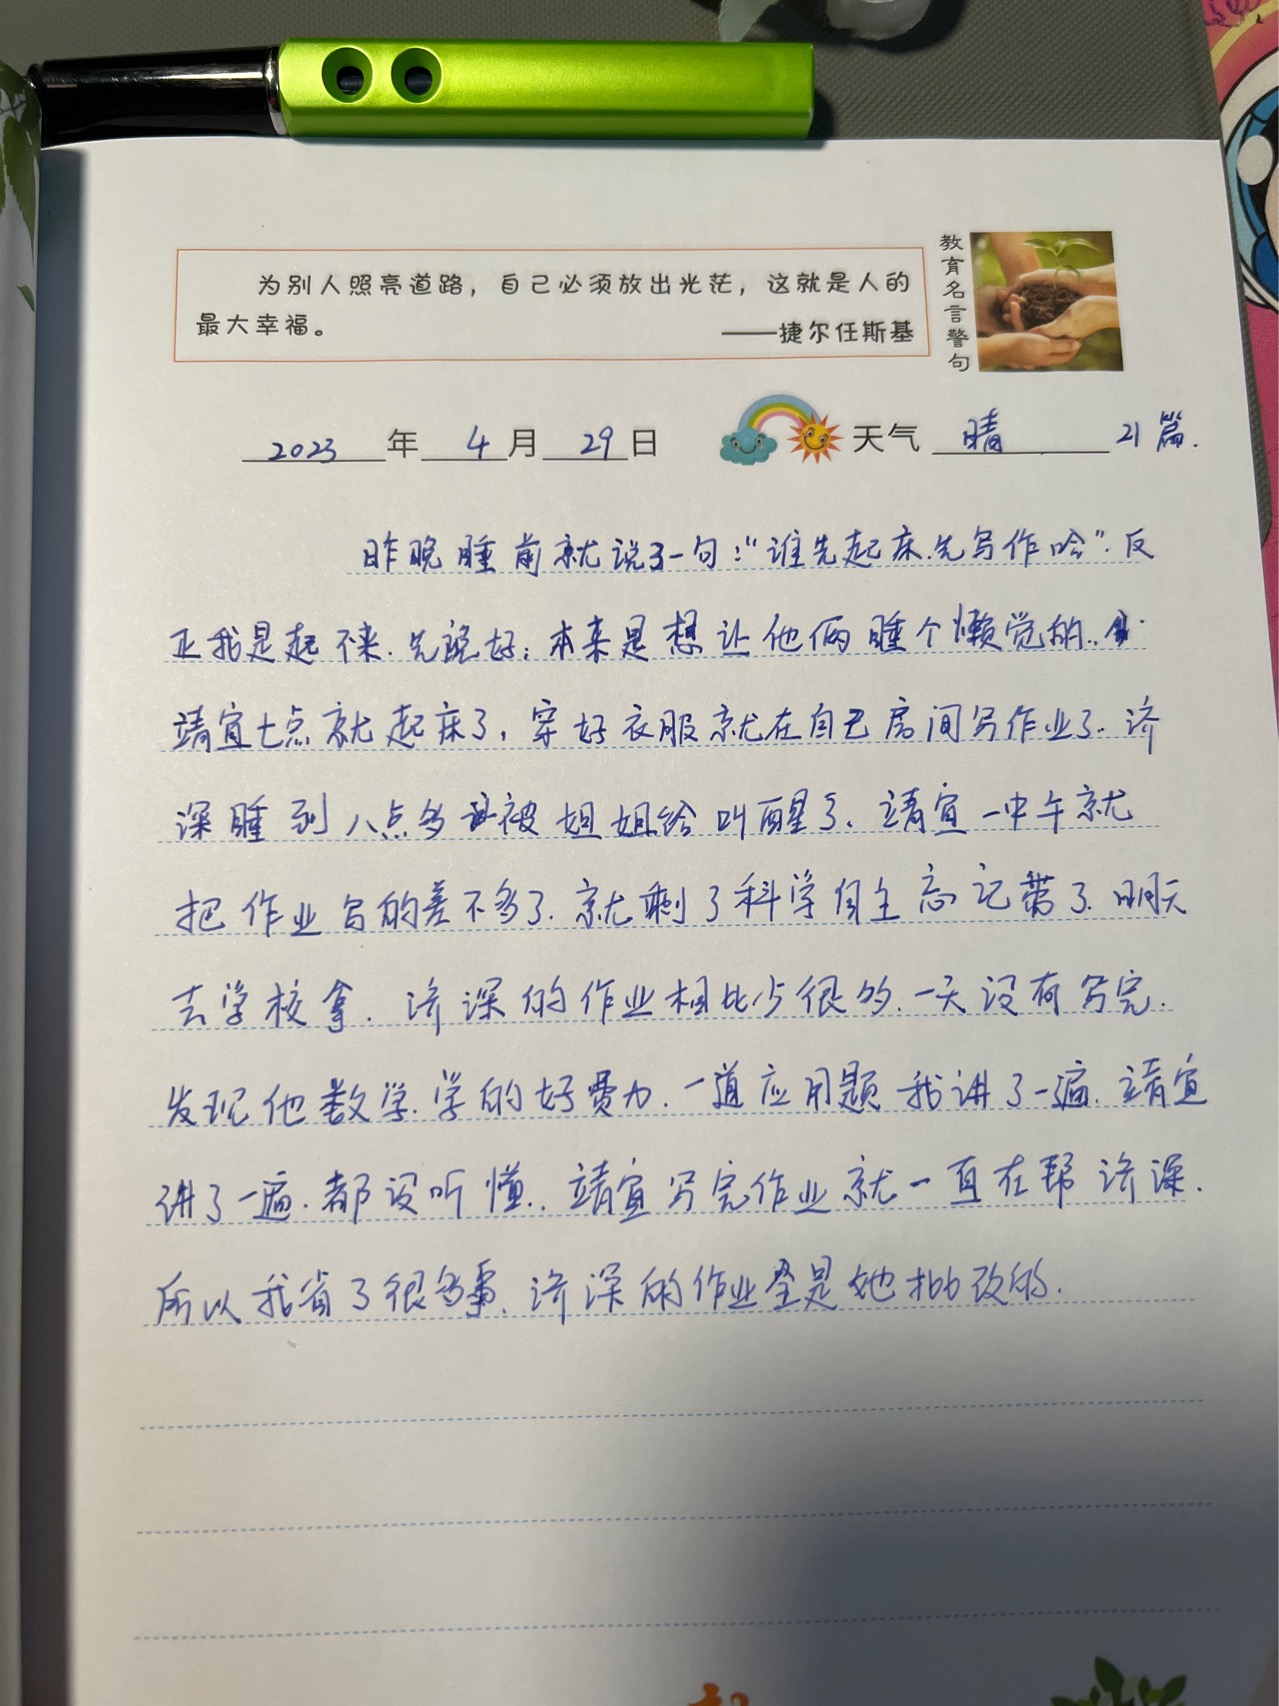 为别人照亮道路，自己必须放出光芒，这就是人的
最大幸福。
——捷尔任斯基
教育名言警句
2023年4月29日 天气 晴 21篇.
昨晚睡前就说了一句:“谁先起床.先写作哈”.反
正我是起不来.先说好;本来是想让他俩睡个懒觉的..
靖宜七点就起床了,穿好衣服就在自己房间写作业了.济
深睡到八点多被姐姐给叫醒了.靖宜一中午就
把作业写的差不多了.就剩了科学自主忘记带了.明天
去学校拿.济深的作业相比少很多.一天没有写完.
发现他数学.学的好费力.一道应用题我讲了一遍.靖宜
讲了一遍.都没听懂..靖宜写完作业就一直在帮济深.
所以我省了很多事.济深的作业全是她批改的.